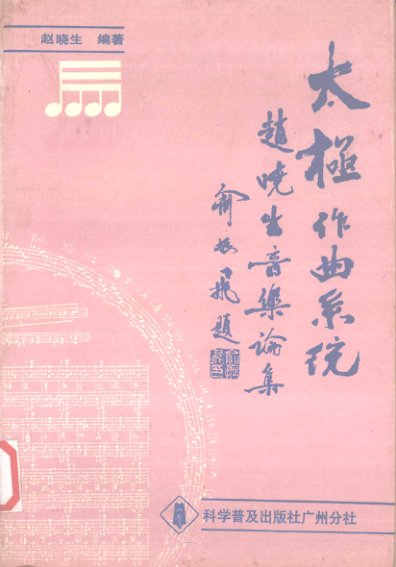 赵晓生 编著
太極作曲系统
趙曉生音樂論集
俞振飛題
科学普及出版社广州分社